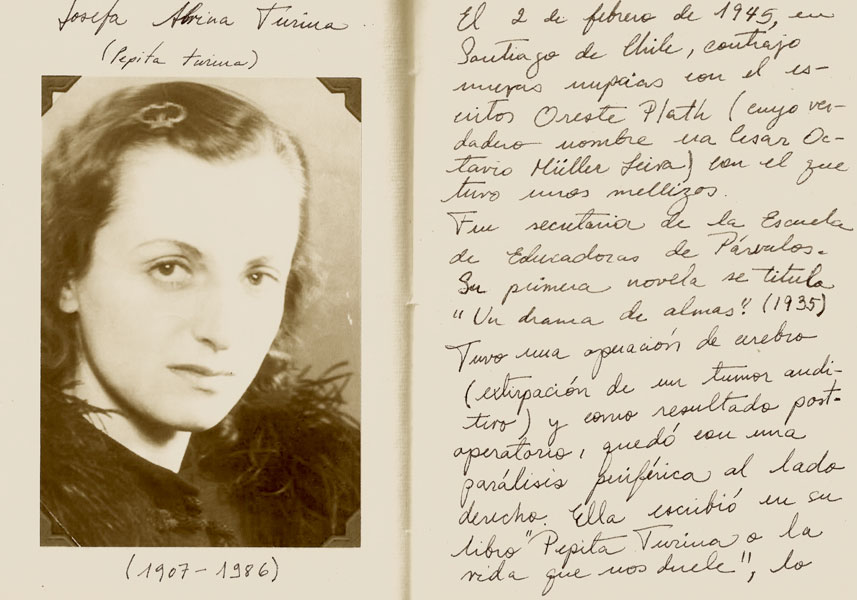 Josefa Alvina Turina
(Pepita Turina)
(1907-1986)
El 2 de febrero de 1945, en
Santiago de Chile, contrajo
nuevas nupcias con el es-
critor Oreste Plath (cuyo ver-
dadero nombre era Cesar Oc-
tavio Müller Leiva) con el que
tuvo unos mellizos.
Fue secretaria de la Escuela
de Educadoras de Párvulos.
Su primera novela se titula
"Un drama de almas". (1935)
Tuvo una operación de cerebro
(extirpación de un tumor audi-
tivo) y como resultado post-
operatorio, quedó con una
parálisis periférica al lado
derecho. Ella escribió en su
libro "Pepita Turina o la
vida que nos duele", lo